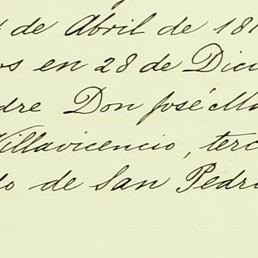 de Abril de 18
os en 28 de Dici
dre Don José Ma
Villavicencio, terc
do de San Pedr